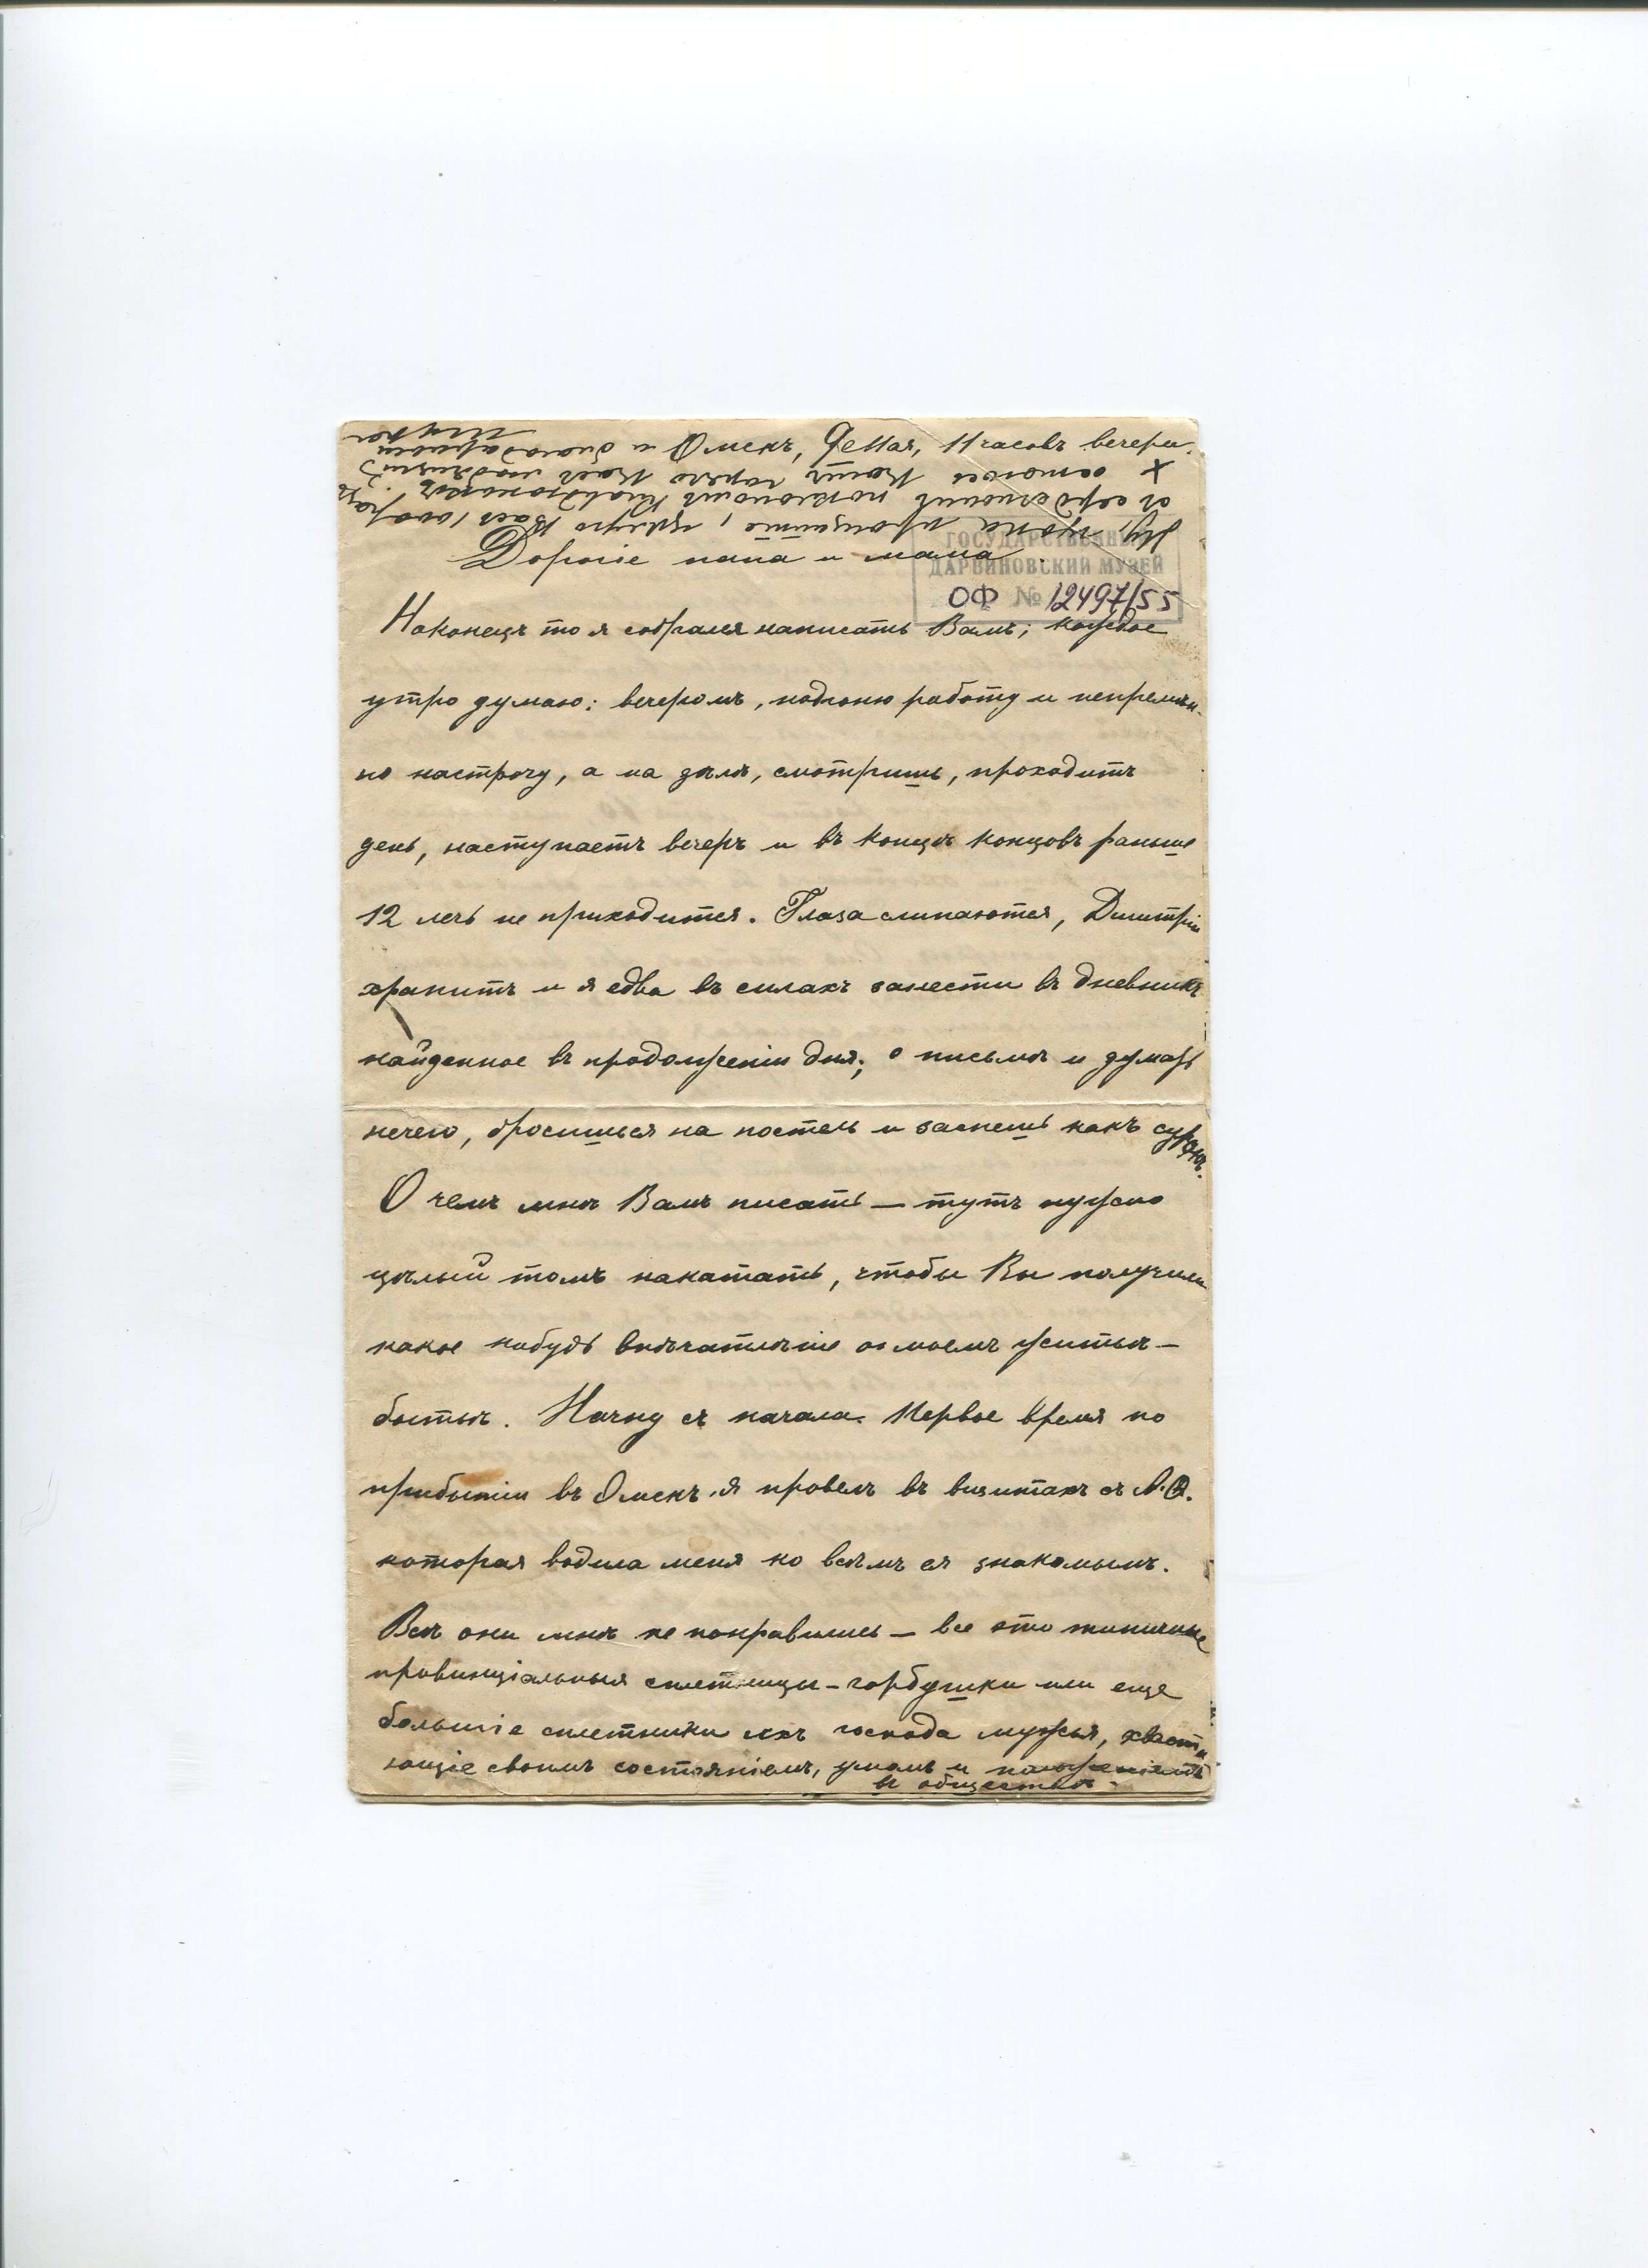 Омскъ, 9е Мая, 11 часовъ вечера.
Ну, пока прощайте, цѣлую Васъ 1000 разъ
съ сердечнымъ поклономъ
остаюсь Вашъ горячо Васъ любящій
и благодарный
ГОСУДАРСТВЕННЫЙ
ДАРВИНОВСКИЙ МУЗЕЙ
ОФ № 12497/55
Дорогіе папа и мама
Наконецъ то я собрался написать Вамъ; каждое
утро думаю: вечеромъ, подгоню работу и непремѣн-
но настрочу, а на дѣлѣ, смотришь, проходитъ
день, наступаетъ вечеръ и въ концѣ концовъ раньше
12 лечь не приходится. Глаза слипаются, Дмитрій
храпитъ и я едва въ силахъ занести въ дневникъ
найденное въ продолженіи дня; о письмѣ и думать
нечего, бросишься на постель и заснешь какъ сурокъ.
О чемъ мнѣ Вамъ писать — тутъ нужно
цѣлый томъ накатать, чтобы Вы получили
какое нибудь впечатлѣніе о моемъ житьѣ —
бытьѣ. Начну съ начала. Первое время по
прибытіи въ Омскъ я провелъ въ визитахъ съ А.Ѳ.
которая водила меня по всѣмъ ея знакомымъ.
Всѣ они мнѣ не понравились — все это типичные
провинціальныя сплетницы — горбушки или еще
большіе сплетники ихъ господа мужья, хваста
ющіе своимъ состояніемъ, умомъ и положеніемъ
въ обществѣ.